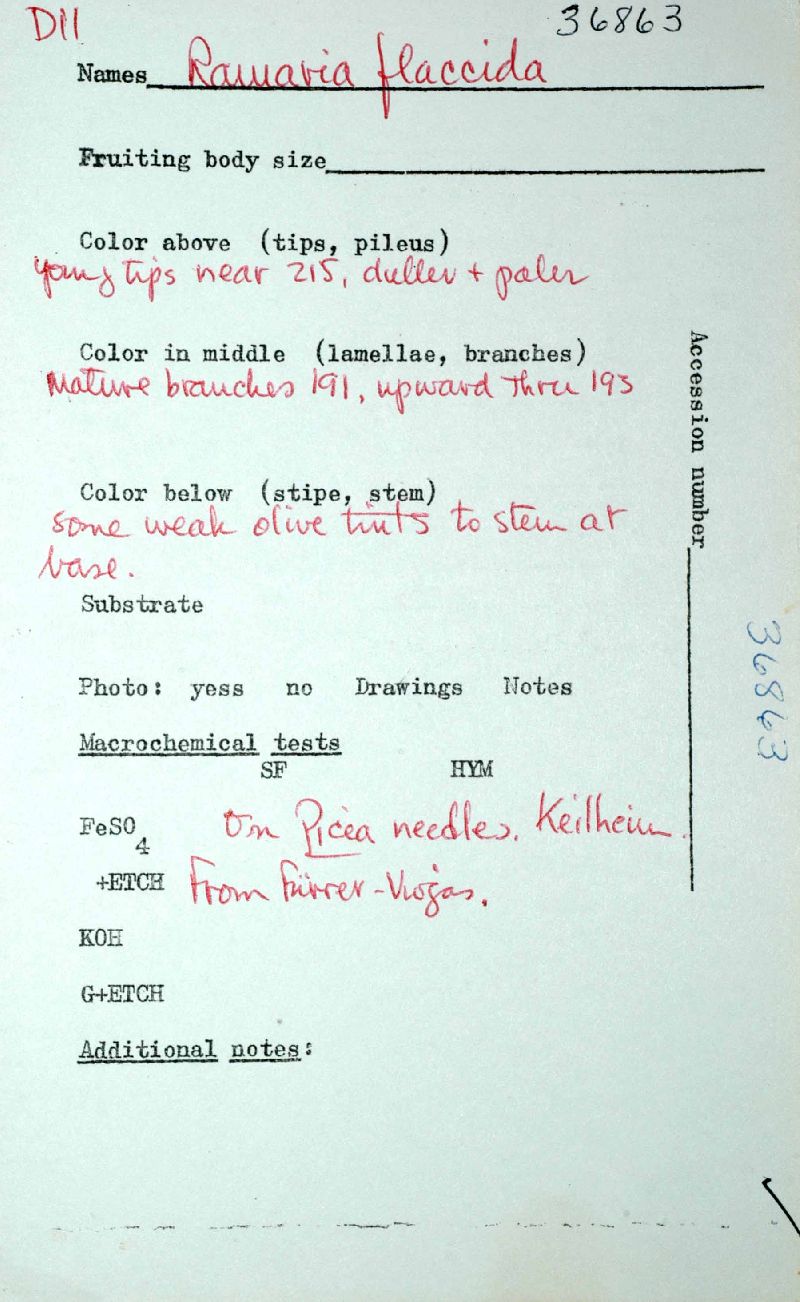 D11
36863
Names Ramaria flaccida
Fruiting body size
Color above (tips, pileus)
young tips near 215, duller + paler
Color in middle (lamellae, branches)
Mature branches 191, upward thru 193
Color below (stipe, stem)
some weak olive tints to stem at
base.
Substrate
Photo: yess no Drawings Notes
Macrochemical tests
SF HYM
FeSO4 On Picea needles. Keilheim.
+ETCH From Fürrer-Viojas.
KOH
G+ETCH
Additional notes:
Accession number
36863